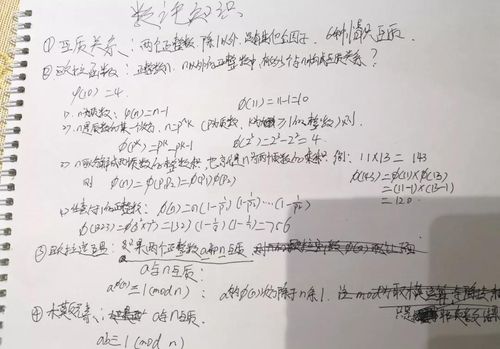 数论知识
① 互质关系：两个正整数，除1以外，没有其他公因子， 6种情况互质.
② 欧拉函数：正整数n， n以内的正整数中，有多少个与n构成互质关系？
φ(10)=4.
1>. n为质数： φ(n)=n-1 φ(11)=11-1=10
2>. n是质数的某一个次方， n=p^k （p为质数， k为 ≥1的整数）则
φ(p^k)=p^k-p^(k-1) φ(2^3)=2^3-2^2=4.
3> n可以分解成两个互质的整数积， 也 n为两个质数的乘积 例： 11×13 = 143
则 φ(n)=φ(P1P2)=φ(P1)φ(P2) φ(143)=φ(11)×φ(13)
=(11-1)×(13-1)
=120.
4> 任意大于1的正整数： φ(n)=n(1-1/P1)(1-1/P2)…(1-1/Pr)
φ(1323)=φ(3^3×7^2)=1323(1-1/3)(1-1/7)=756
③ 欧拉定理： 如果两个正整数a和n互质
a与n互质：
a^φ(n)≡1(mod n) ： a的φ(n)次方除于n余1.
④ 模反元素： a与n互质.
ab≡1 (mod n)